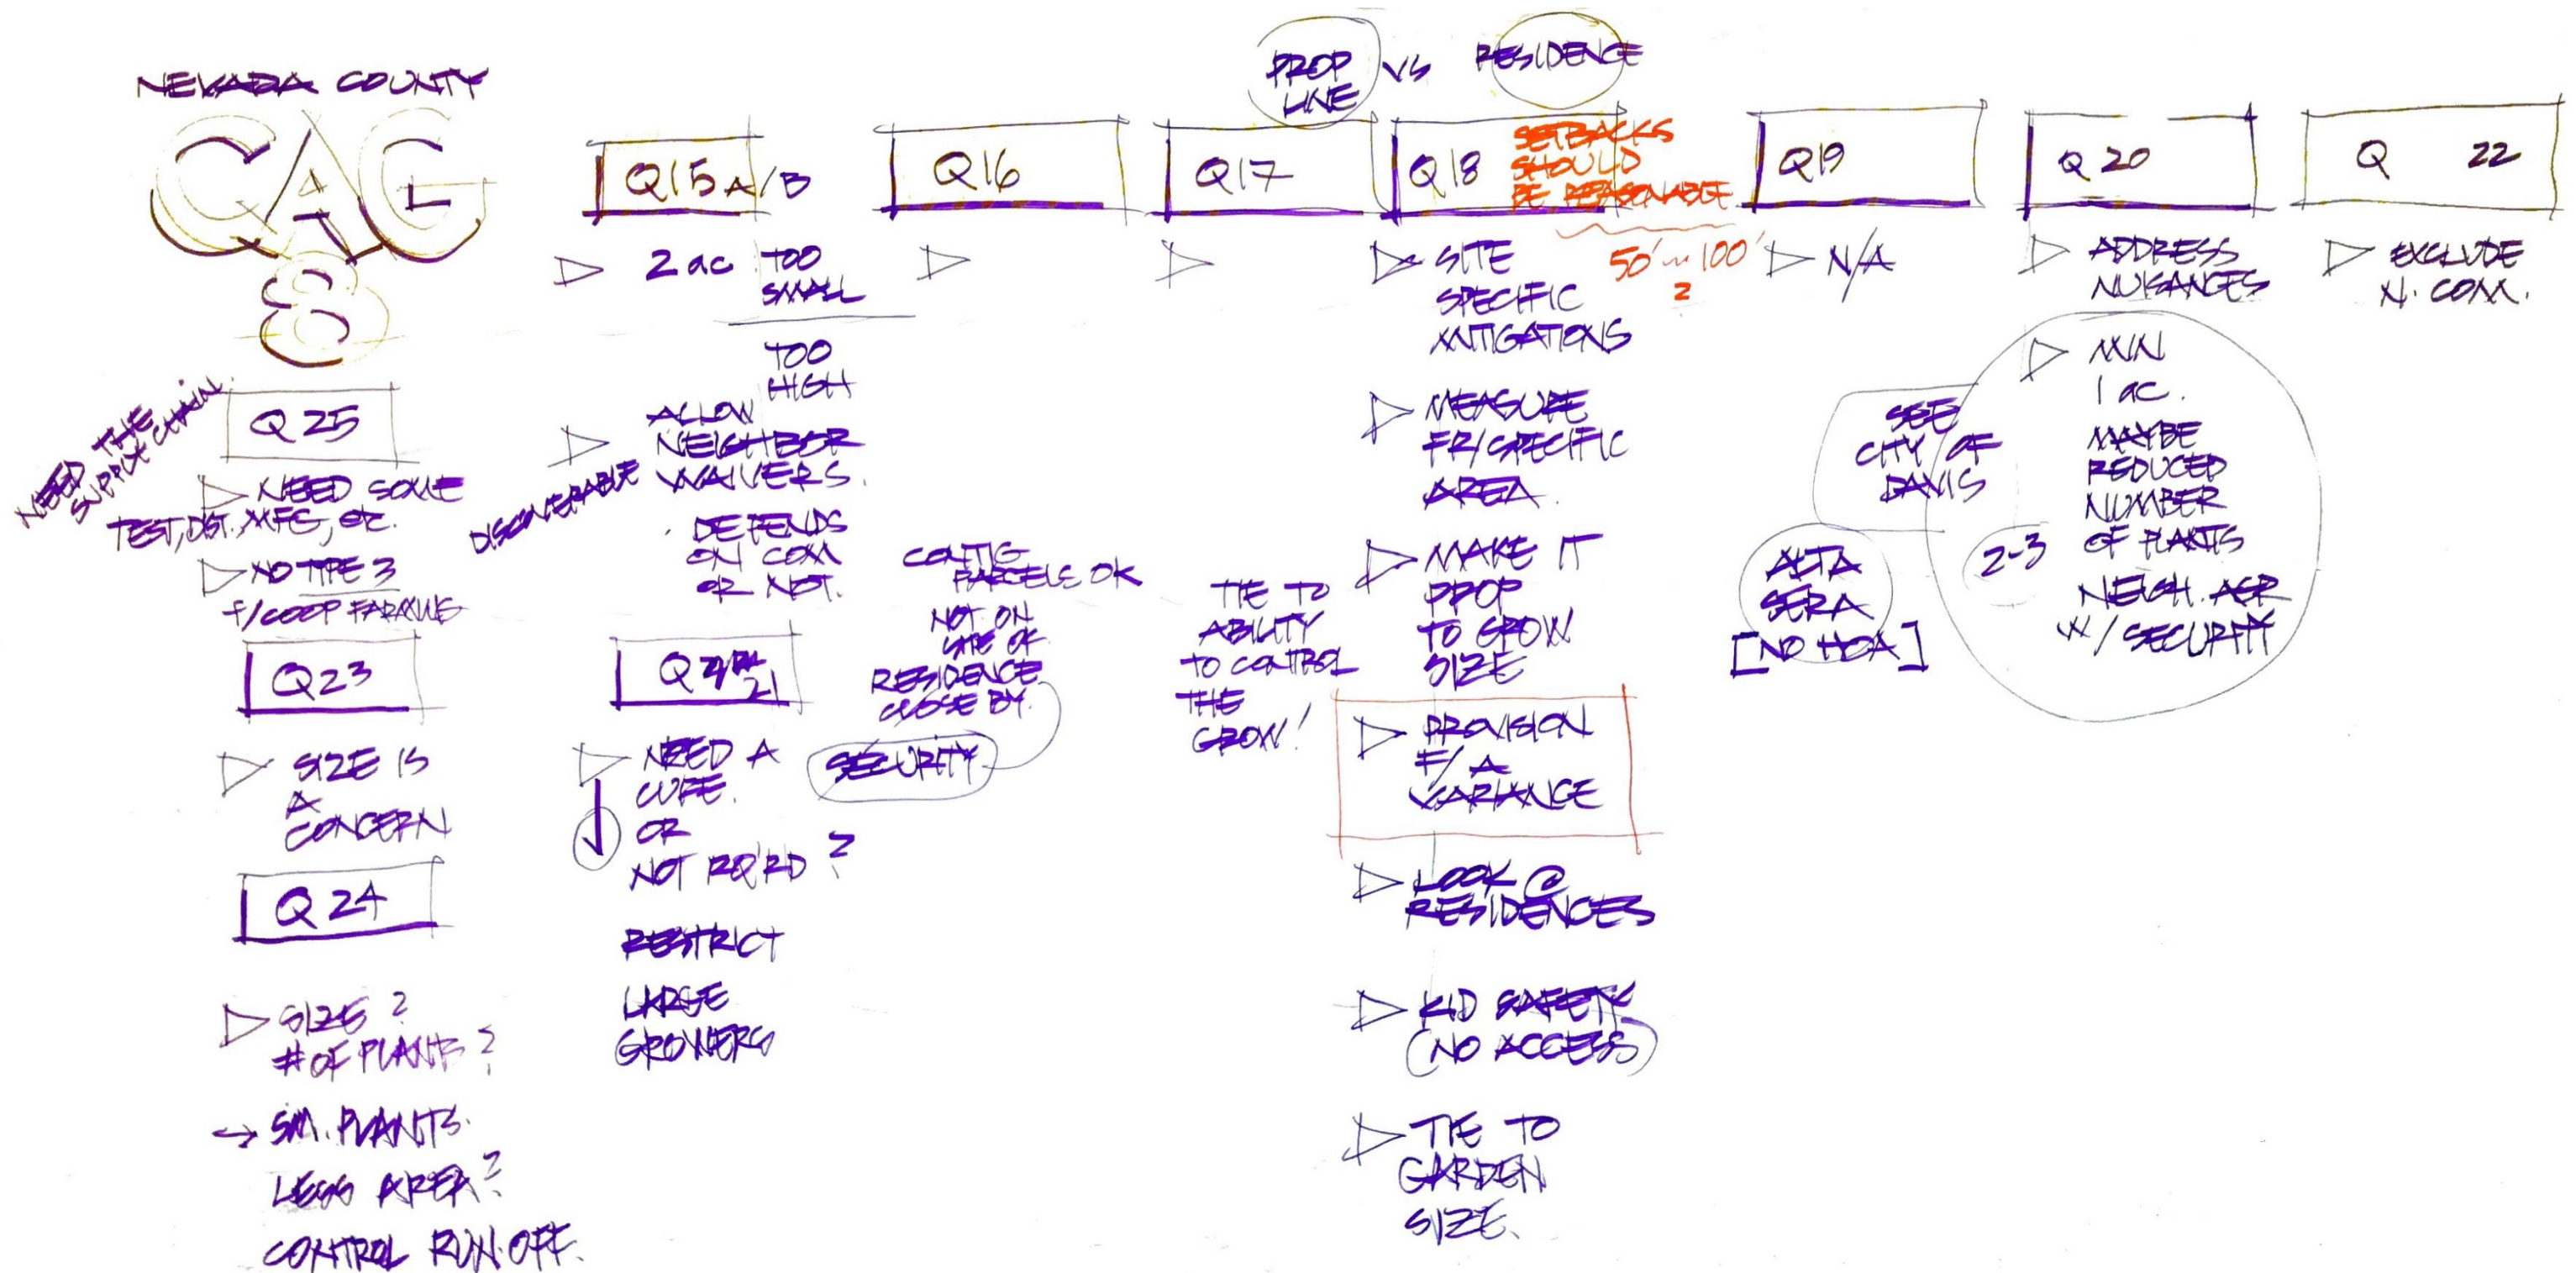 NEVADA COUNTY
CAG
8
NEED THE
SUPPLY CHAIN.
Q25
NEED SOME
TEST, DIST., MFG, etc.
NO TYPE 3
f/COOP FARMING
Q23
SIZE IS
A
CONCERN
Q24
SIZE ?
# OF PLANTS ?
→ SM. PLANTS.
LESS AREA?
CONTROL RUN.OFF.
Q15 A/B
2 ac TOO
SMALL
TOO
HIGH
ALLOW
NEIGHBOR
WAIVERS.
DEPENDS
ON COM
OR NOT.
Q
21
NEED A
OR
NOT RQ'RD ?
RESTRICT
LARGE
GROWERS
Q16
CONTIG
PARCELS OK
NOT ON
SITE OK
RESIDENCE
CLOSE BY.
SECURITY
Q17
TIE TO
ABILITY
TO CONTROL
THE
GROW!
PROP
LINE
VS RESIDENCE
Q18
SETBACKS
SHOULD
BE REASONABLE
50' ~ 100'
?
SITE
SPECIFIC
MITIGATIONS
MEASURE
FR/SPECIFIC
AREA.
MAKE IT
PROP
TO GROW
SIZE
PROVISION
F/A
VARIANCE
LOOK @
RESIDENCES
KID SAFETY
(NO ACCESS)
TIE TO
GARDEN
SIZE.
Q19
N/A
SEE
CITY OF
DAVIS
ALTA
SERA
[NO HOA]
Q20
ADDRESS
NUISANCES
MIN
1 ac.
MAYBE
REDUCED
NUMBER
OF PLANTS
2-3
NEIGH. AGR
W/ SECURITY
Q 22
EXCLUDE
N. COM.